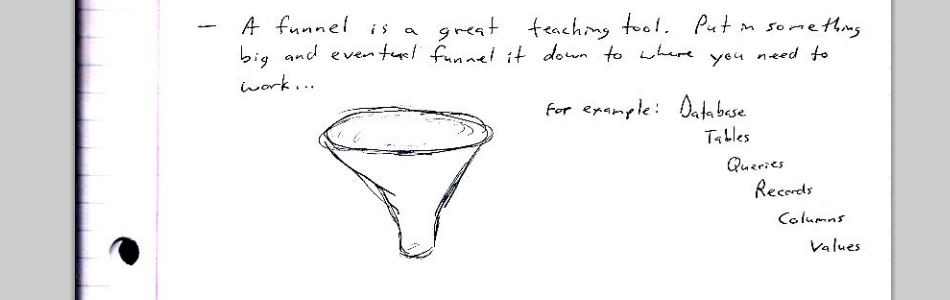 - A funnel is a great teaching tool. Put in something
big and eventual funnel it down to where you need to
work...
For example: Database
Tables
Queries
Records
Columns
Values